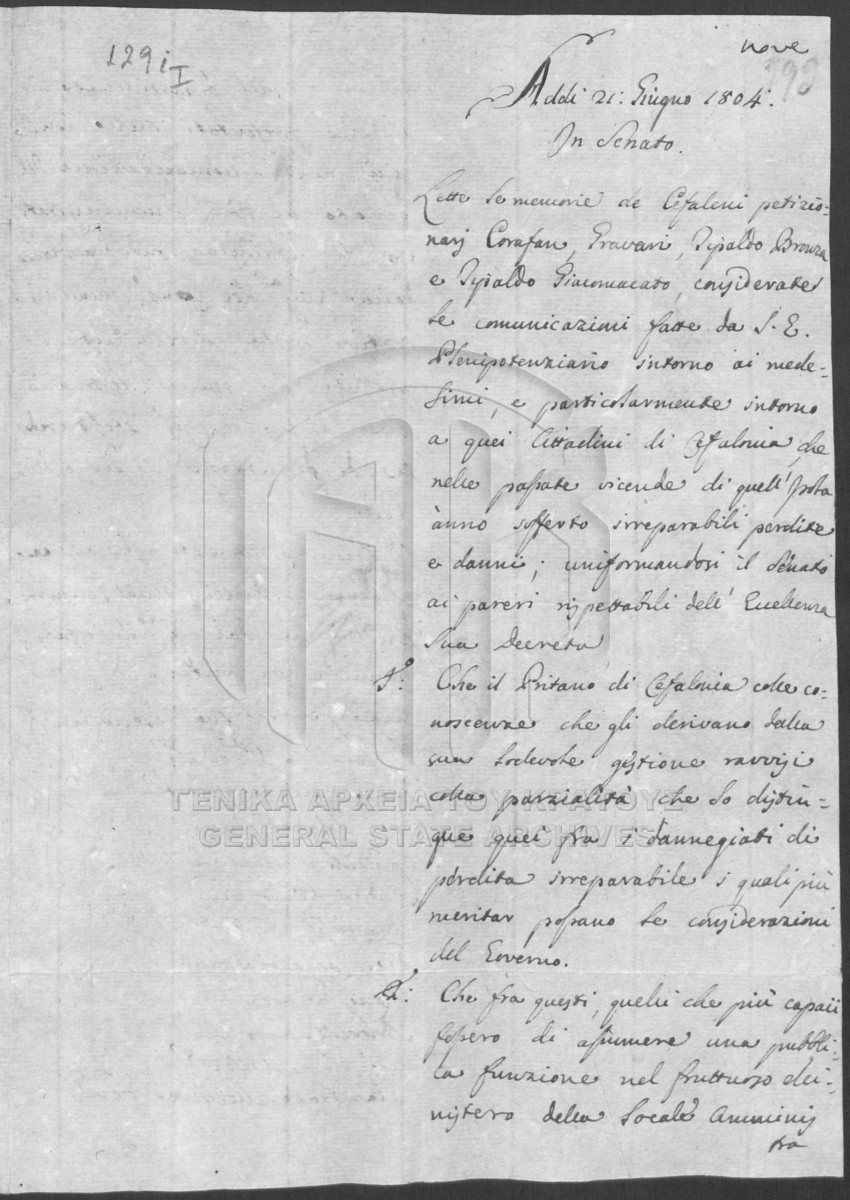 129i
I
nove
398
Addi 21: Giugno 1804.
In Senato.
Lette le memorie de Cefaleni petizio-
narj Corafan, Gravari, Tipaldo Bronza
e Tipaldo Giacomacato, considerate
le comunicazioni fatte da S. E.
Plenipotenziario intorno ai mede-
simi, e particolarmente intorno
a quei Cittadini di Cefalonia, che
nelle passate vicende di quell' Isola
ànno sofferto irreparabili perdite
e danni; uniformandosi il Senato
ai pareri rispettabili dell' Eccellenza
Sua Decreta
1º: Che il Pritano di Cefalonia colle co-
noscenze che gli derivano dalla
sua lodevole gestione ravvisi
colla parzialità che lo distin-
gue quei fra i dannegiati di
perdita irreparabile i quali più
meritar possano le considerazioni
del Governo.
2: Che fra questi, quelli che più capaci
fossero di assumere una pubbli-
ca funzione nel fruttuoso
nistero della Locale Amminis
tra
ΓΕΝΙΚΑ ΑΡΧΕΙΑ ΤΟΥ ΚΡΑΤΟΥΣ
GENERAL STATE ARCHIVES